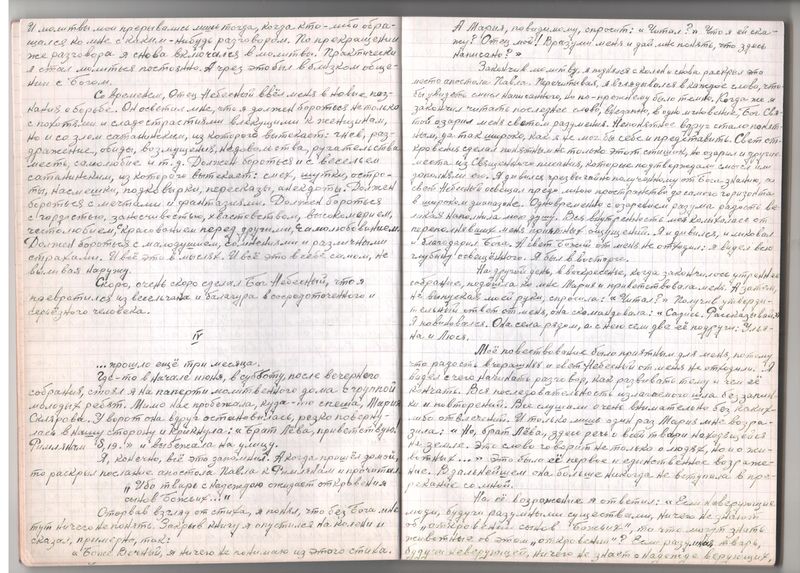 И молитвы мои прерывались лишь тогда, когда кто-либо обра-
щался ко мне с каким-нибудь разговором. По прекращении
же разговора я снова включался в молитву. Практически
я стал молиться постоянно. А чрез это был в близком обще-
нии с Богом.
Со временем, Отец Небесный ввёл меня в новые поз-
нания о борьбе. Он осветил мне, что я должен бороться не только
с похотями и сладострастиями влекущими к женщинам,
но и со злом сатанинским, из которого вытекает: гнев, раз-
дражение, обиды, возмущения, недовольства, ругательства
месть, самолюбие и т.д. Должен бороться и с весельем
сатанинским, из которого вытекает: смех, шутки, остро-
ты, насмешки, подковырки, пересказы, анекдоты. Должен
бороться с мечтами и фантазиями. Должен бороться
с гордостью, заносчивостью, хвастовством, высокомерием,
честолюбием, красованием перед другими, самолюбованием.
Должен бороться с малодушием, сомнениями и различными
страхами. И всё это в мыслях. И всё это в себе самом, не
выливая наружу.
Скоро, очень скоро сделал Бог Небесный, что я
превратился из весельчака и балагура в сосредоточенного и
серьёзного человека.
IV
...прошло ещё три месяца.
Где-то в начале июня, в субботу, после вечернего
собрания, стоял я на паперти молитвенного дома с группой
молодых ребят. Мимо нас пробежала, куда-то спеша, Мария
Склярова. У ворот она вдруг остановилась, резко поверну-
лась в нашу сторону и крикнула: „Брат Лёва, приветствую!
Римлянам 8,19." и выбежала на улицу.
Я, конечно, всё это запомнил. А когда пришёл домой,
то раскрыл послание апостола Павла к Римлянам и прочитал
„Ибо тварь с надеждою ожидает откровения
сынов Божьих..."
Оторвав взгляд от стиха, я понял, что без Бога мне
тут ничего не понять. Закрыв книгу я опустился на колени и
сказал, примерно, так:
„Боже Вечный, я ничего не понимаю из этого стиха.
А Мария, по видимому, спросит: „Читал?". Что я ей ска-
жу? Отец мой! Вразуми меня и дай мне понять, что здесь
написано?"
Закончив молитву, я поднялся с колен и снова раскрыл это
место апостола Павла. Перечитывая, я вглядывался в каждое слово, что-
бы увидеть смысл написанного, но по-прежнему было темно. Когда же я
закончил читать последнее слово, внезапно, в одно мгновение, Бог Свя-
той озарил меня светом разумения. Непонятное вдруг стало понят-
ным, да так широко, как я не мог бы себе и представить. Свет от-
кровения сделал понятным не только этот стишок, но озарил и другие
места из священного писания, которые подтверждали смысл или
дополняли его. Я дивился чрезвычайно полученному от Бога знанию, а
свет Небесный освещал предо мною пространство до самого горизонта
в широком диапазоне. Одновременно с озарением разума радость ве-
ликая наполнила мою душу. Вся внутренность моя колыхалась от
переполнявших меня отрадных ощущений. Я и дивился, и ликовал
и благодарил Бога. А свет Божий от меня не отходил: я видел всю
глубину освещённого. Я был в восторге.
На другой день, в воскресенье, когда закончилось утреннее
собрание, подошла ко мне Мария и приветствовала меня. А затем,
не выпуская моей руки, спросила: „Читал?" Получив утверди-
тельный ответ от меня, она скомандовала: „Садись. Рассказывай!"
Я повиновался. Она села рядом, а с нею сели две её подруги: Улья-
на и Люся.
Моё повествование было приятным для меня, потому
что радость вчерашняя и свет Небесный от меня не отходили. Я
видел с чего начинать разговор, как развивать тему и чем её
кончать. Вся последовательность излагаемого шла без запин-
ки и повторений. Все слушали очень внимательно без каких-
либо отвлечений. И только лишь один раз Мария мне возра-
зила: „Но, брат Лёва, здесь речь о всей твари находящейся
на земле. Это слово говорит не только о людях, но и о жи-
вотных..." Это было её первое и единственное возраже-
ние. В дальнейшем она больше никогда не вступала в пре-
рекание со мной.
На её возражение я ответил: „Если неверующие
люди, будучи разумными существами, ничего не знают
об „откровении сынов Божьих", то что могут знать
животные об этом „откровении"? Если разумная тварь,
будучи неверующей, ничего не знает о надежде верующих,